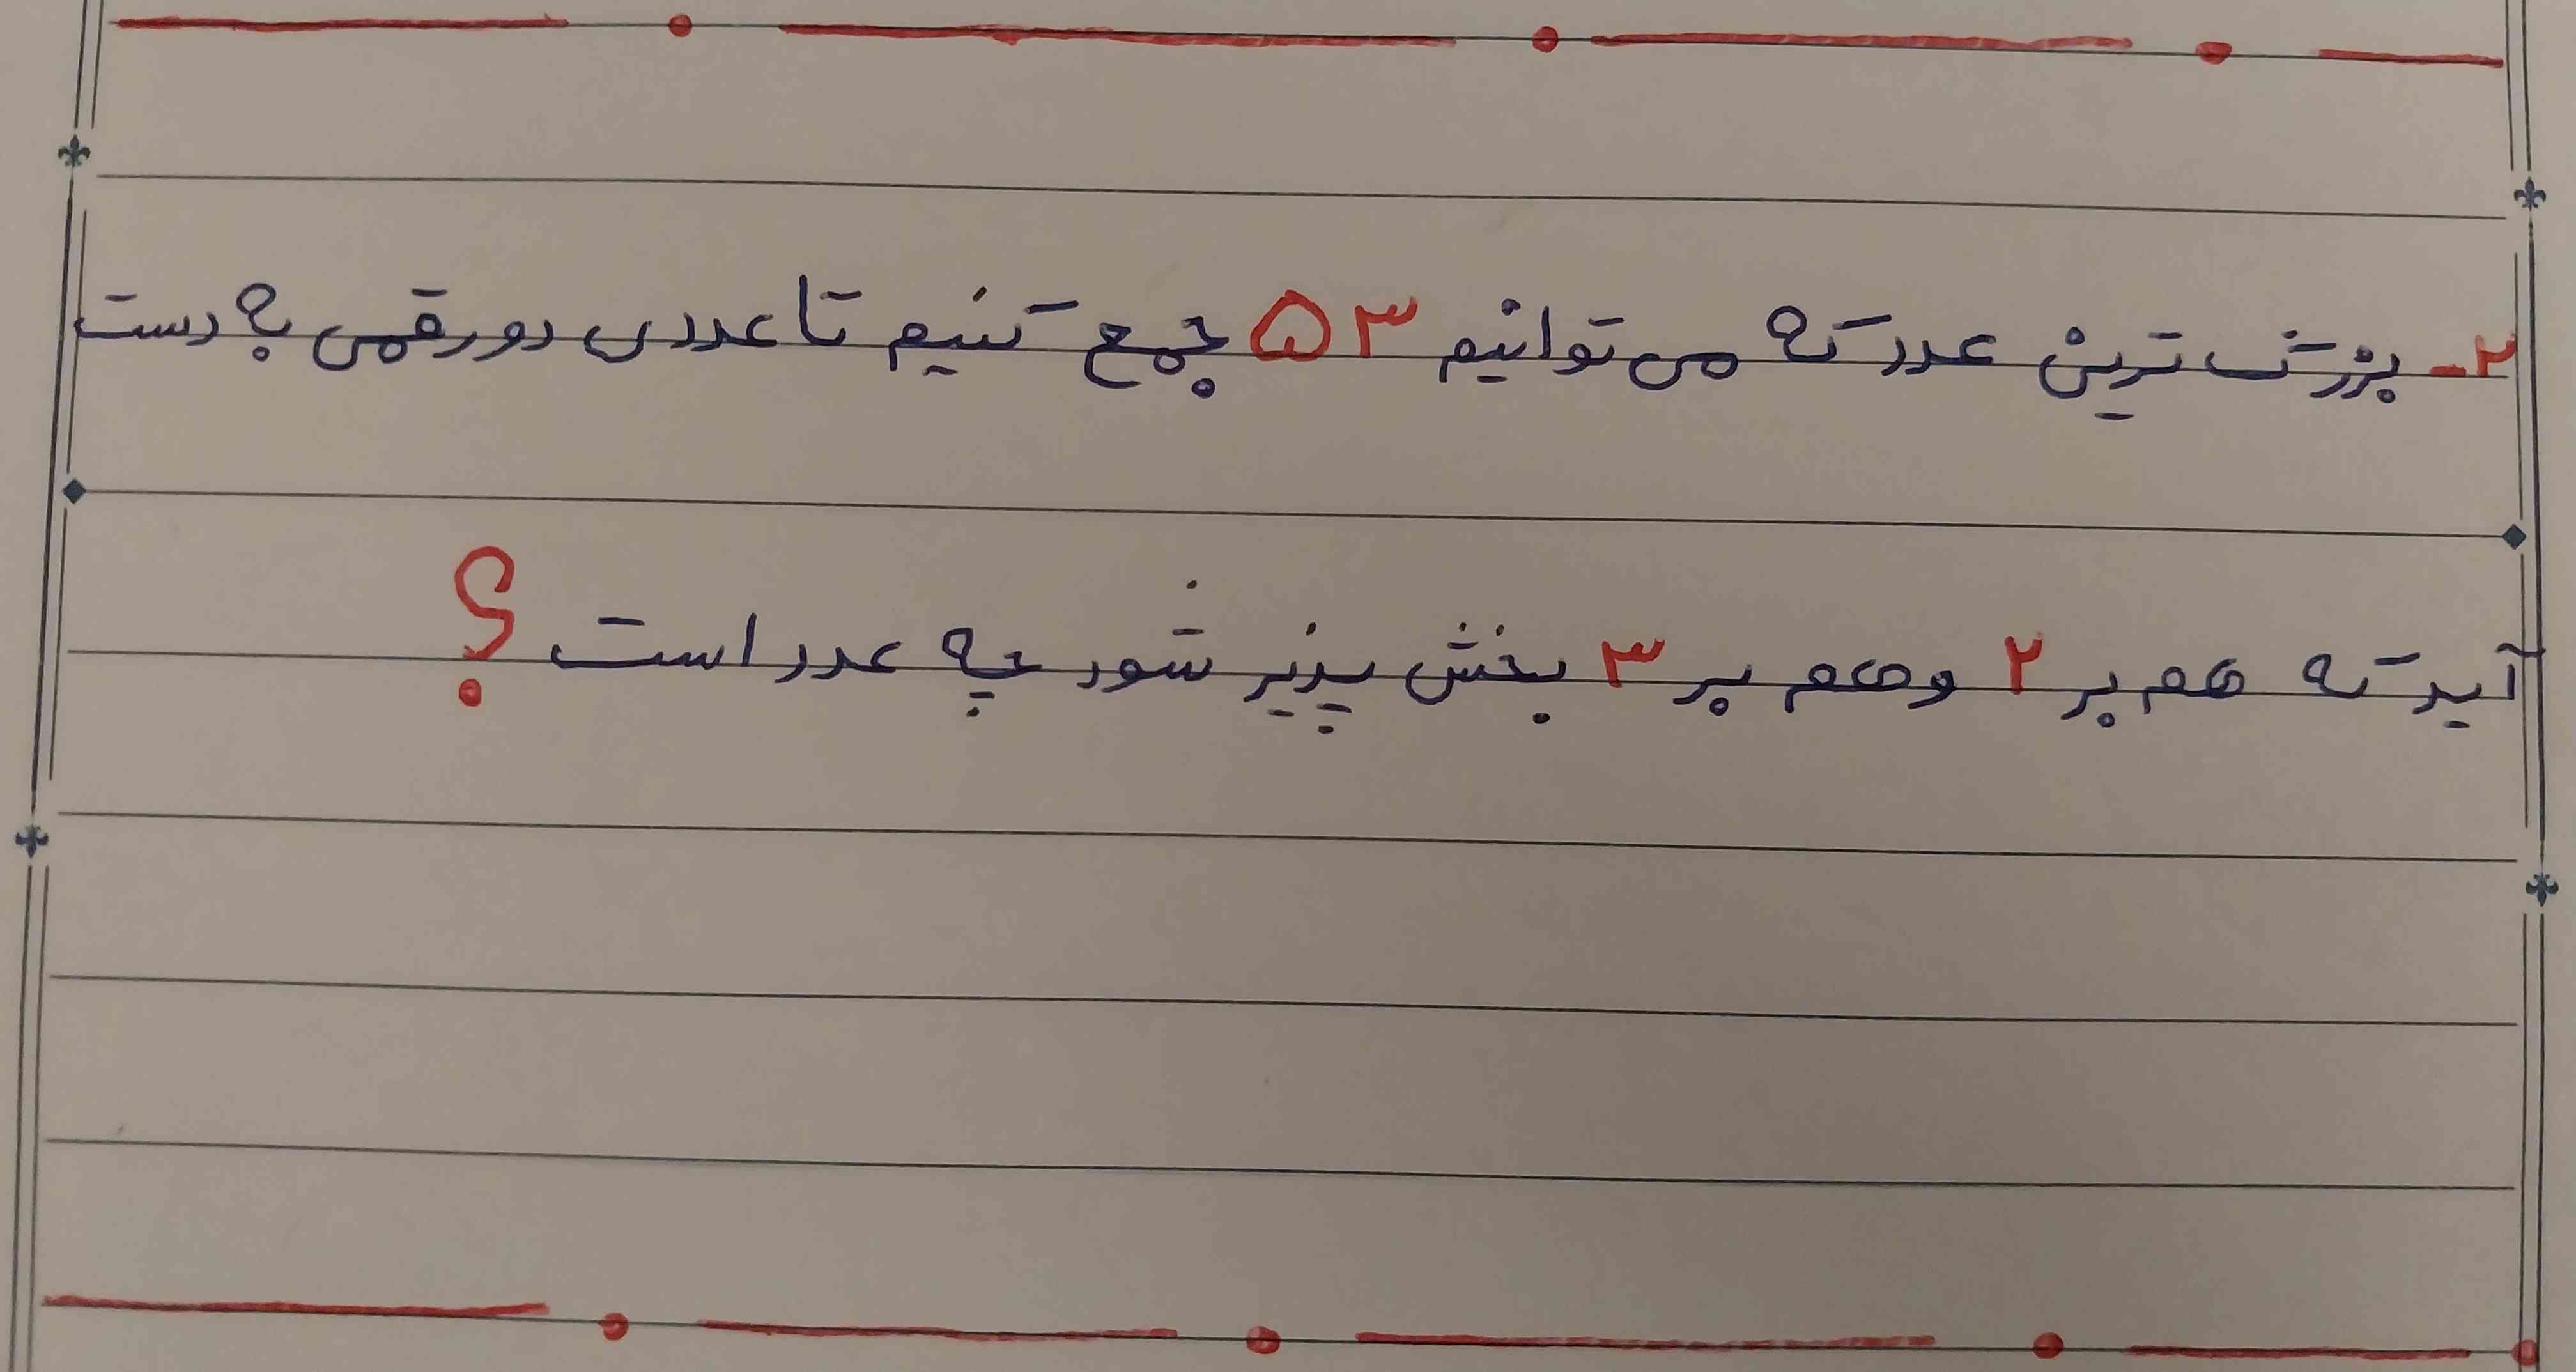 ۲- بزرگ ترین عدد که می توانیم ۵۳ جمع کنیم تا عددی دو رقمی به دست
آید که هم بر ۲ و هم بر ۳ بخش پذیر شود چه عدد است ؟